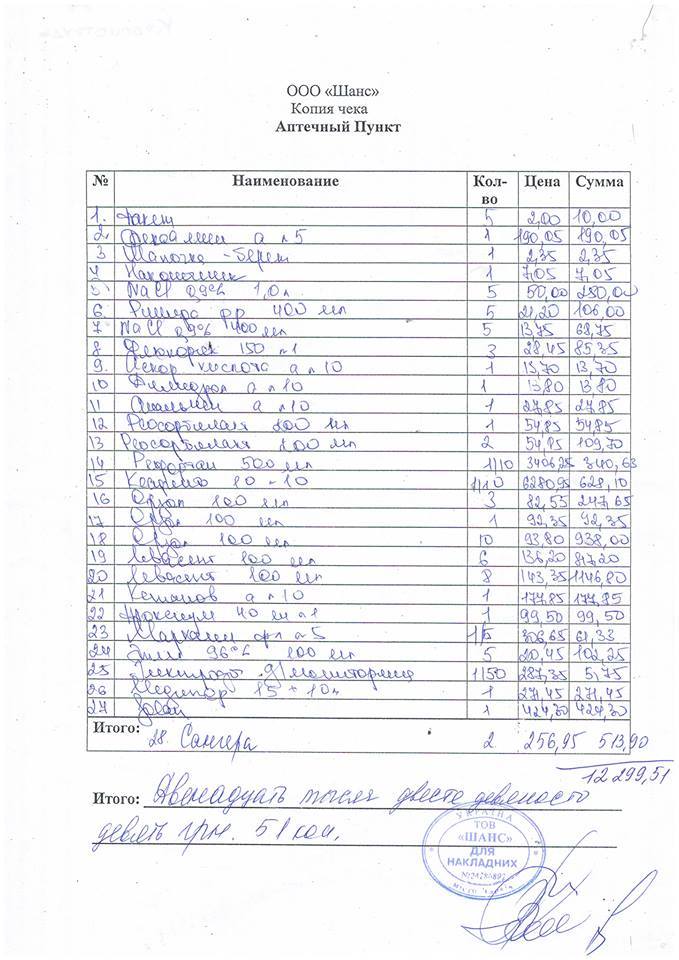 ООО «Шанс»
Копия чека
Аптечный Пункт
№ Наименование Кол-во Цена Сумма
1. Пакет 5 2,00 10,00
2. а n 5 1 190,05 190,05
3 Шапочка - берет 1 2,35 2,35
4 Наконечник 1 7,05 7,05
5 NaCl 0,9% 1,0л 5 50,00 250,00
6. Рингера р-р 400 мл 5 21,20 106,00
7. NaCl 0,9% 400 мл 5 13,75 68,75
8 150 n1 3 28,45 85,35
9. Аскор кислота а n 10 1 13,70 13,70
10 Димедрол а n 10 1 13,80 13,80
11 Анальгин а n 10 1 27,85 27,85
12 Реосорбилакт 200 мл 1 54,85 54,85
13 Реосорбилакт 200 мл 2 54,85 109,70
14 Рефортан 500 мл 1/10 3406,25 340,63
15 10 n 10 1/10 6280,95 628,10
16 100 мл 3 82,55 247,65
17 100 мл 1 92,35 92,35
18 100 мл 10 93,80 938,00
19 100 мл 6 136,20 817,20
20 100 мл 8 143,35 1146,80
21 Кетанов а n 10 1 177,85 177,85
22 40 мг n 1 1 99,50 99,50
23 Маркаин n 5 1/5 306,65 61,33
24 Этил 96% 100 мл 5 20,45 102,25
25 Электрод д/мониторинга 1/50 287,35 5,75
26 Медипор 15 10 1 271,45 271,45
27 1 424,30 424,30
Итого:
28. Сангера 2 256,95 513,90
12 299,51
Итого: Двенадцать тысяч двести девяносто
девять грн. 51 коп.
УКРАЇНА
ТОВ
«ШАНС»
ДЛЯ
НАКЛАДНИХ